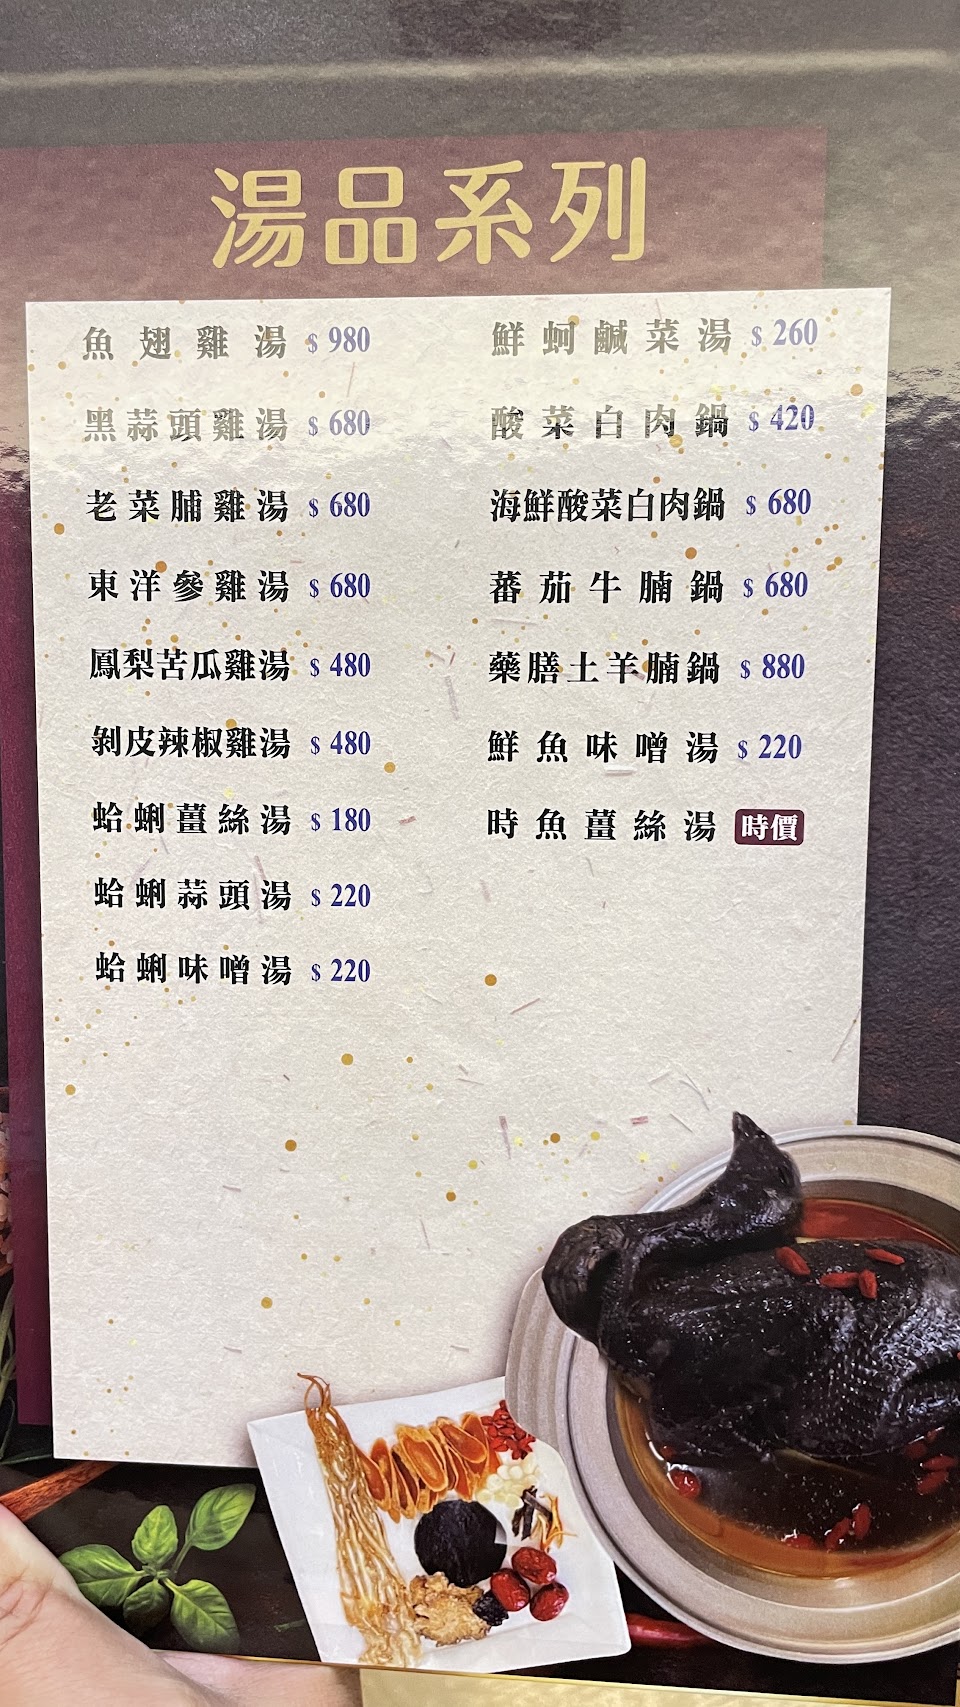 湯品系列
魚翅雞湯 $980
黑蒜頭雞湯 $680
老菜脯雞湯 $680
東洋參雞湯 $680
鳳梨苦瓜雞湯 $480
剝皮辣椒雞湯 $480
蛤蜊薑絲湯 $180
蛤蜊蒜頭湯 $220
蛤蜊味噌湯 $220
鮮蚵鹹菜湯 $260
酸菜白肉鍋 $420
海鮮酸菜白肉鍋 $680
蕃茄牛腩鍋 $680
藥膳土羊腩鍋 $880
鮮魚味噌湯 $220
時魚薑絲湯 時價